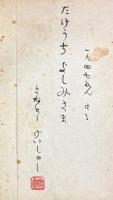 一九四七ねん はる
たけうち よしみさま
さねとー けいしゅー